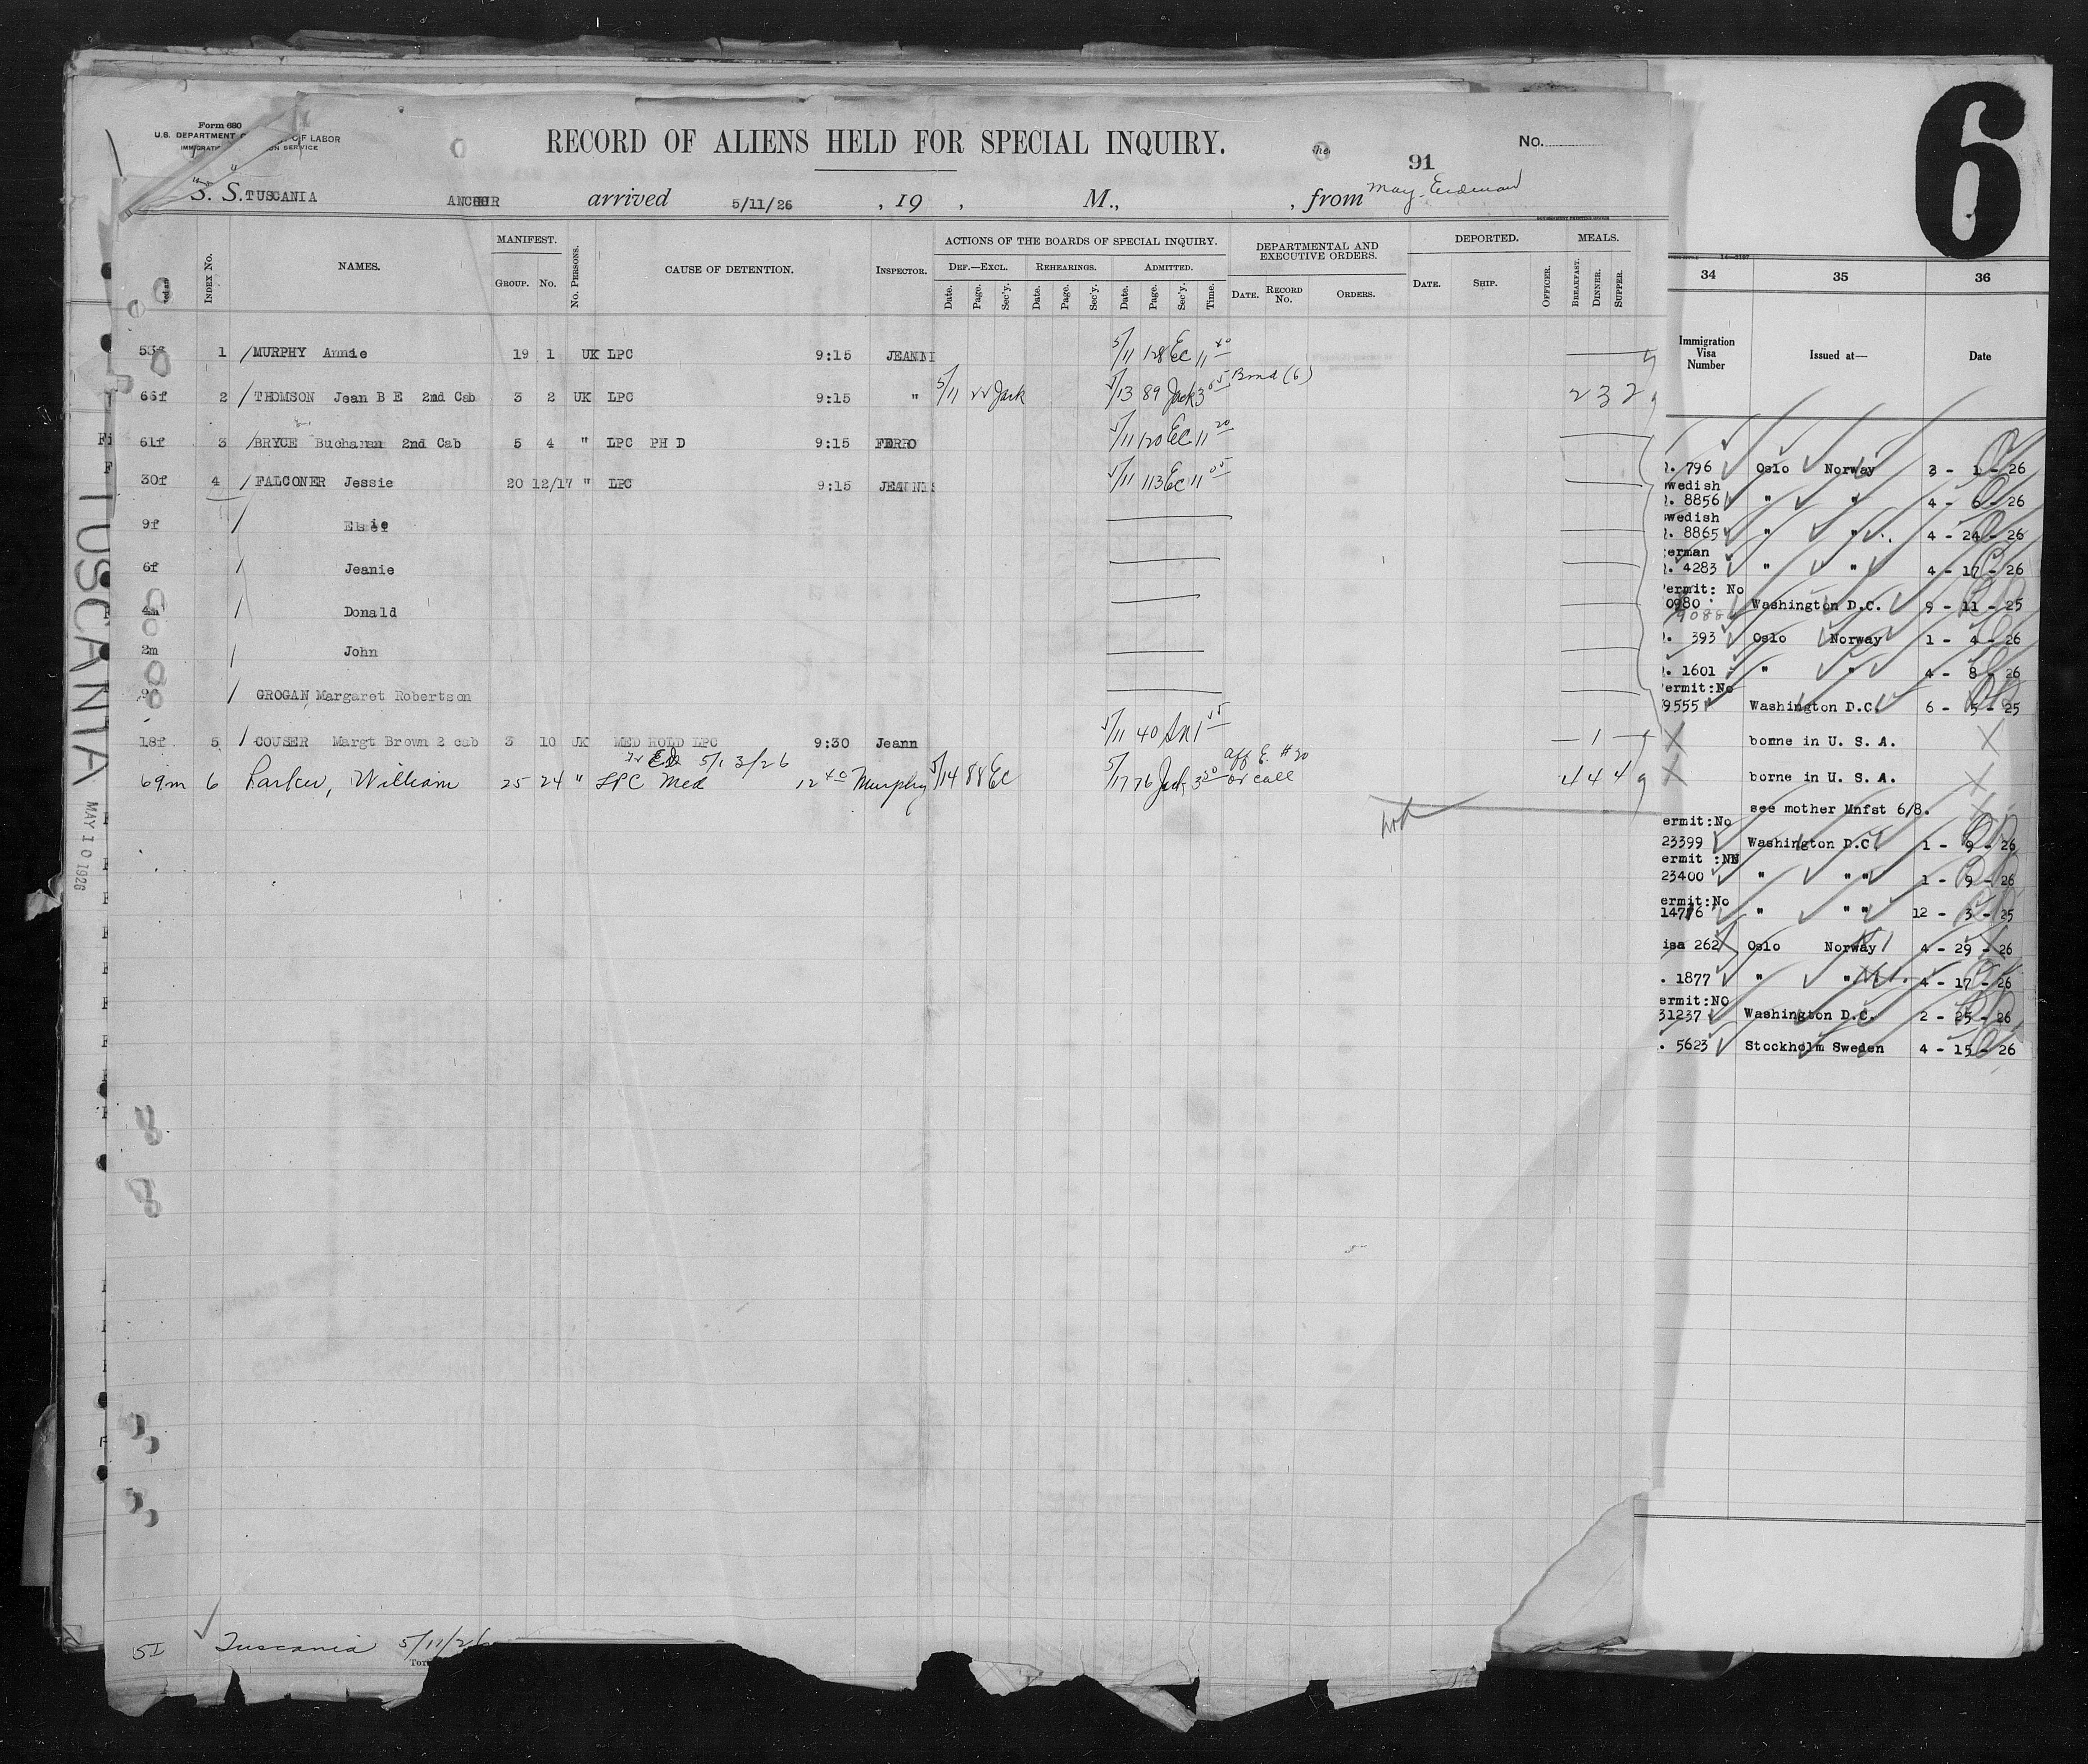 Form 680
U.S. DEPARTMENT OF LABOR
RECORD OF ALIENS HELD FOR SPECIAL INQUIRY.
No.
91
S. S. TUSCANIA ANCHOR arrived 5/11/26 , 19 , M., , from May. Erdman
MANIFEST. ACTIONS OF THE BOARDS OF SPECIAL INQUIRY. DEPARTMENTAL AND EXECUTIVE ORDERS. DEPORTED. MEALS.
INDEX No. NAMES. GROUP. No. No. PERSONS. CAUSE OF DETENTION. INSPECTOR. DEF.—EXCL. REHEARINGS. ADMITTED.
Date. Page. Sec'y. Date. Page. Sec'y. Date. Page. Sec'y. Time. DATE. RECORD No. ORDERS. DATE. SHIP. OFFICER. BREAKFAST. DINNER. SUPPER.
53f 1 / MURPHY Annie 19 1 UK LPC 9:15 JEANNI 5/11 128 EC 11 40
66f 2 / THOMSON Jean B E 2nd Cab 3 2 UK LPC 9:15 " 5/11 22 Jack 5/13 89 Jack 3 05 Bond (6) 2 3 2
61f 3 / BRYCE Buchanan 2nd Cab 5 4 " LPC PH D 9:15 FERRO 5/11 120 EC 11 20
30f 4 / FALCONER Jessie 20 12/17 " LPC 9:15 JEANNIS 5/11 113 EC 11 05
9f / Elsie
6f / Jeanie
4m / Donald
2m / John
/ GROGAN, Margaret Robertson
18f 5 / COUSER Margt Brown 2 cab 3 10 UK MED HOLD LPC 9:30 Jeann 5/11 40 1 1
5/13/26
69m 6 Parker, William 25 24 " LPC Med 12 40 Murphy 5/14 88 EC 5/17 76 Jack 3 30 aff E. #20 or call 4 4 4
51 Tuscania 5/11/26
TUSCANIA
MAY 10 1926
6
34 35 36
Immigration Visa Number Issued at— Date
796 Oslo Norway 3 - 1 - 26
wedish
8856 " " 4 - 6 - 26
wedish
8865 " " 4 - 24 - 26
erman
4283 " " 4 - 17 - 26
ermit: No
0980 Washington D.C. 9 - 11 - 25
393 Oslo Norway 1 - 4 - 26
1601 " " 4 - 8 - 26
ermit:No
9555 Washington D.C. 6 - 5 - 25
X borne in U. S. A. X
X borne in U. S. A. X
see mother Mnfst 6/8. X
ermit:No
23399 Washington D.C. 1 - 9 - 26
ermit :NN
23400 " " " 1 - 9 - 26
ermit:No
14776 " " " 12 - 3 - 25
isa 262 Oslo Norway 4 - 29 - 26
. 1877 " " 4 - 17 - 26
ermit:NO
31237 Washington D.C. 2 - 25 - 26
. 5623 Stockholm Sweden 4 - 15 - 26